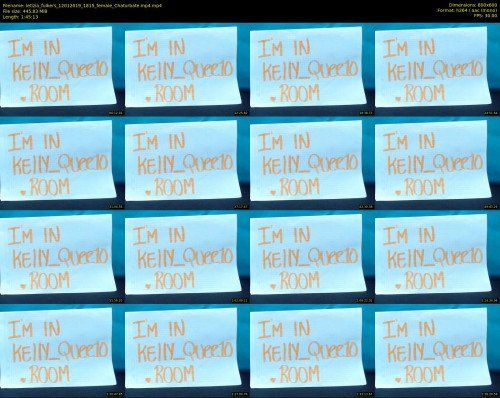 Filename: letizia_fulkers_12012019_1815_female_Chaturbate.mp4.mp4
File size: 445.83 MiB
Length: 1:45:13
Dimensions: 800x600
Format: h264 / aac (mono)
FPS: 30.00
I'M IN
KEllY_Quee10
♥ ROOM
I'M IN
KEllY_Quee10
♥ ROOM
I'M IN
KEllY_Quee10
♥ ROOM
I'M IN
KEllY_Quee10
♥ ROOM
I'M IN
KEllY_Quee10
♥ ROOM
I'M IN
KEllY_Quee10
♥ ROOM
I'M IN
KEllY_Quee10
♥ ROOM
I'M IN
KEllY_Quee10
♥ ROOM
I'M IN
KEllY_Quee10
♥ ROOM
I'M IN
KEllY_Quee10
♥ ROOM
I'M IN
KEllY_Quee10
♥ ROOM
I'M IN
KEllY_Quee10
♥ ROOM
I'M IN
KEllY_Quee10
♥ ROOM
I'M IN
KEllY_Quee10
♥ ROOM
I'M IN
KEllY_Quee10
♥ ROOM
I'M IN
KEllY_Quee10
♥ ROOM